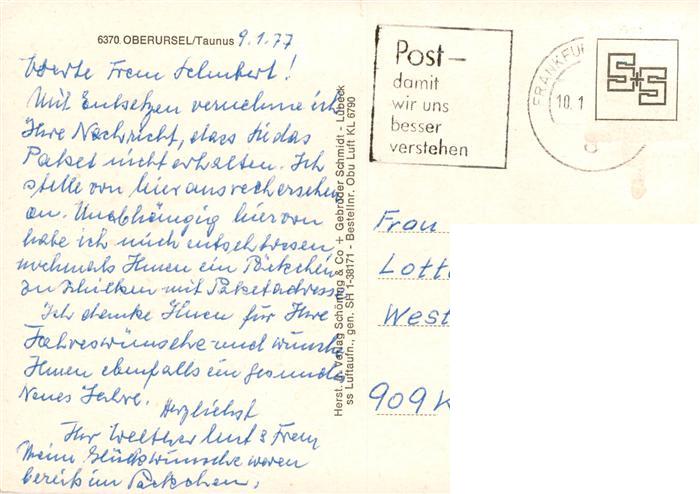 6370 OBERURSEL/Taunus 9.1.77
Werte Frau Schubert!
Mit Entsetzen vernehme ich
Ihre Nachricht, dass Sie das
Paket nicht erhalten. Ich
stelle von hier aus recherschen
an. Unabhängig hiervon
habe ich mich entschlossen
nochmals Ihnen ein Päckchen
zu schicken mit Paketadresse
Ich danke Ihnen für Ihre
Jahreswünsche und wünsche
Ihnen ebenfalls ein gesundes
Neues Jahre.
Herzlichst
Ihr & Frau
Meine Glückwünsche waren
bereits im Päckchen.
Herst. u. Verlag Schöning & Co + Gebrüder Schmidt - Lübeck
ss Luftaufn., gen. SH 1-38171 - Bestellnr. Obu Luft KL 6790
Post-
damit
wir uns
besser
verstehen
FRANKFU
10.1
Frau
Lott
West
909 K